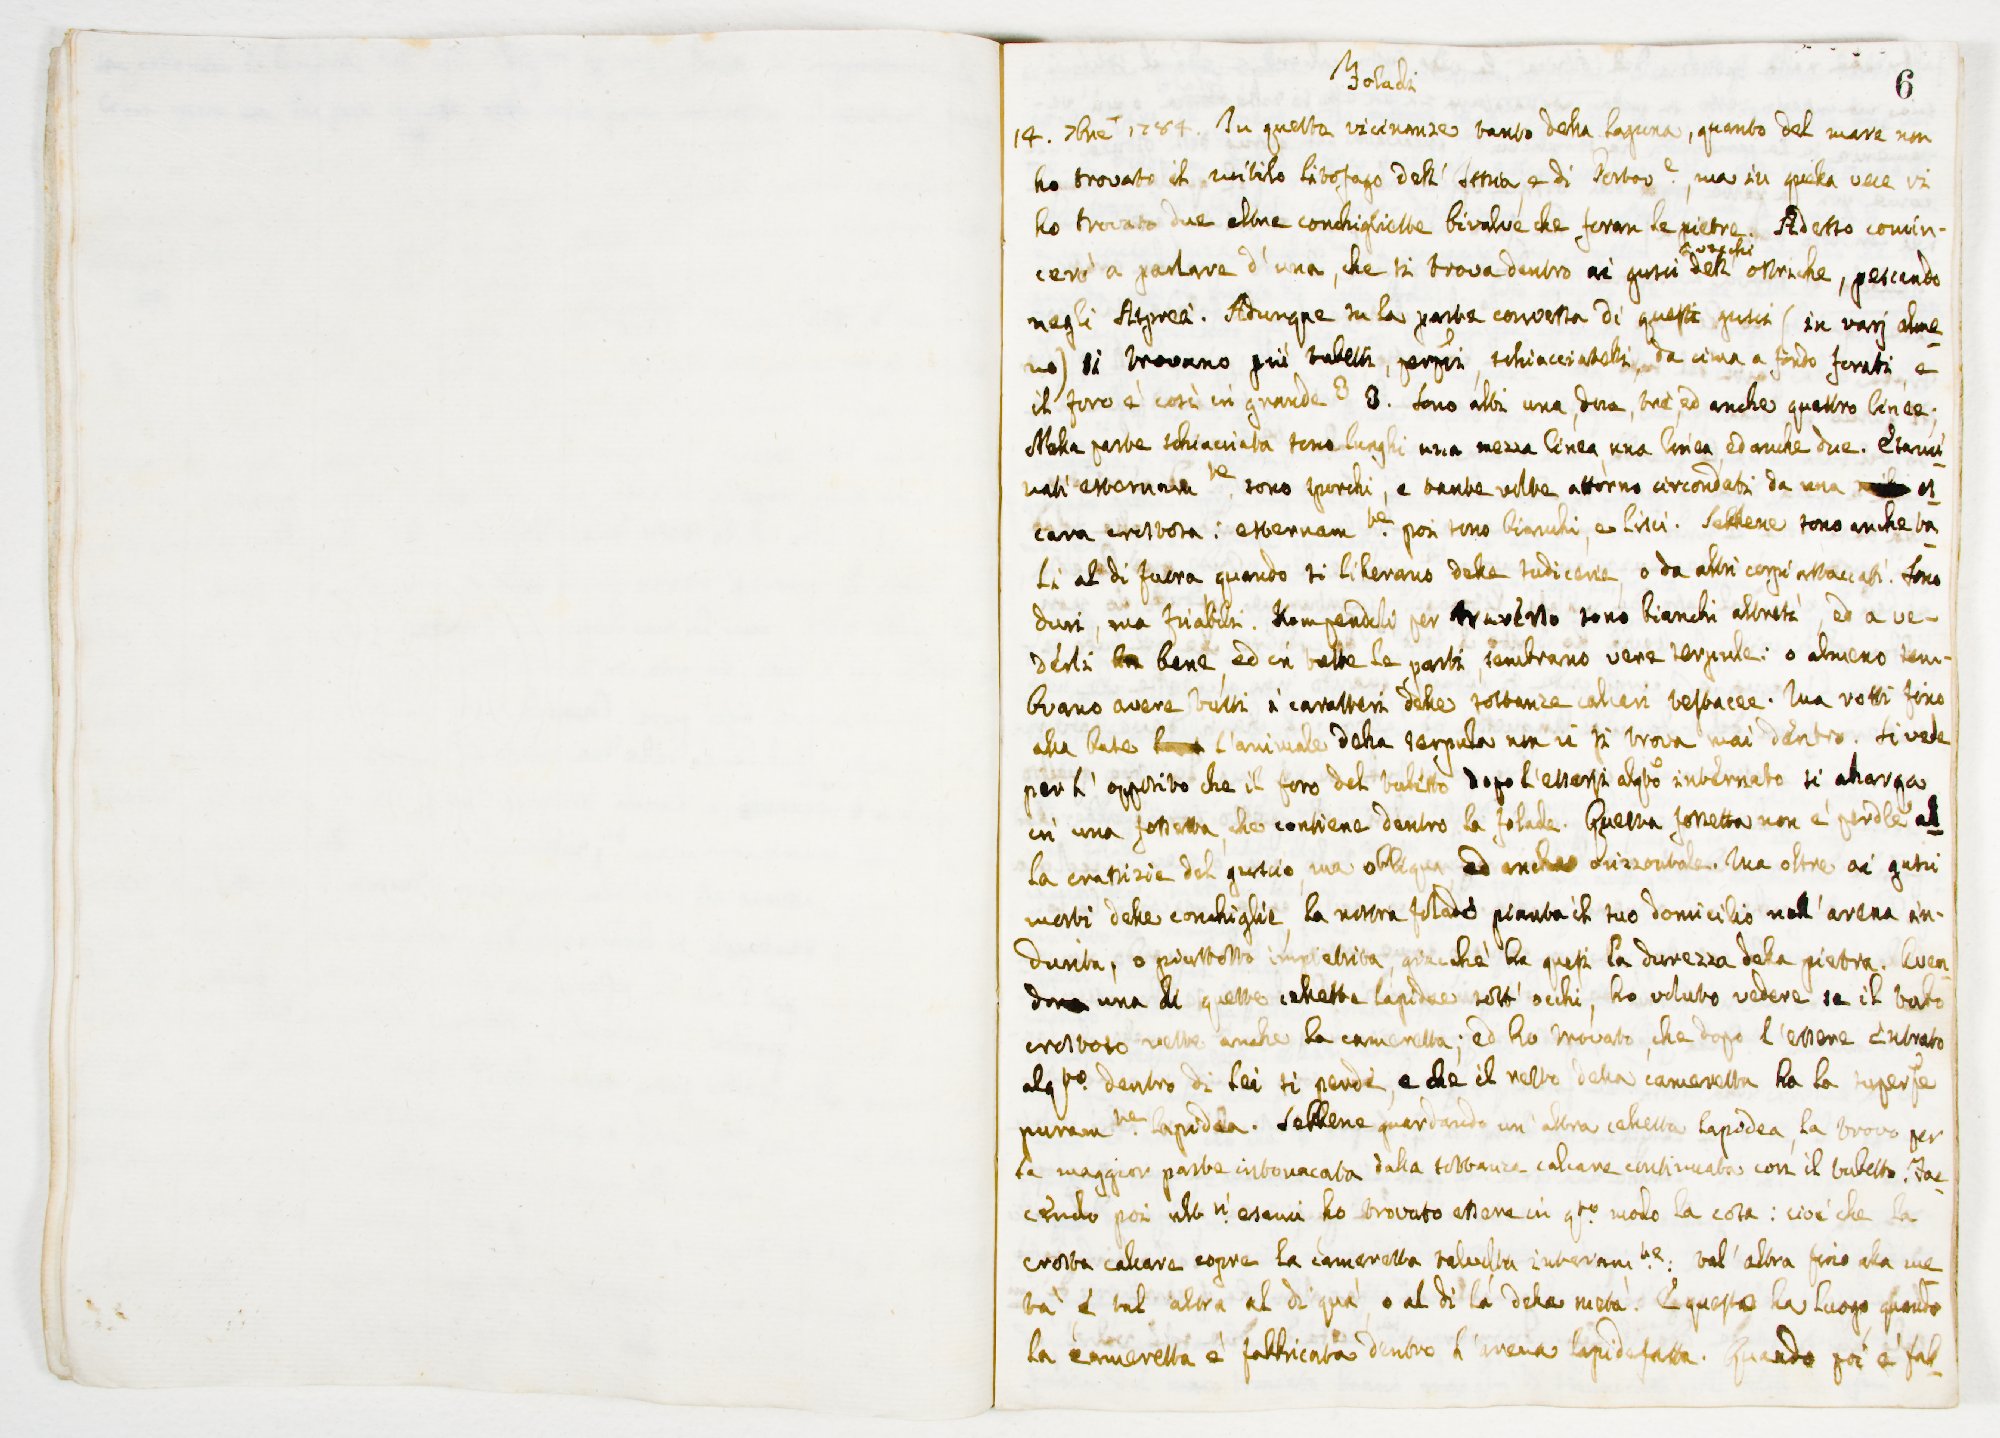 Foladi
6
14. 7bre 1784. In queste vicinanze tanto della laguna, quanto del mare non
ho trovato il mitilo litofago dell' Istria e di Portov.e, ma in quella vece vi
ho trovato due altre conchigliette bivalve che foran le pietre. Adesso comin-
cerò a parlare d' una, che si trova dentro ai gusci vecchi dell' ostriche, pescando
negli Aspreì. Adunque su la parte convessa di questi gusci (in varj alme
no) si trovano più tubetti, schiacciatelli, da cima a fondo forati, e
il foro è così in grande 8 8. Sono alti una, due, tre, ed anche quattro linee;
Nella parte schiacciata sono lunghi una mezza linea, una linea, ed anche due. Esami
nati esternam.te sono sporchi, e tante volte attorno circondati da una
crostosa: esternam.te poi sono bianchi, e lisci. Sebbene sono anche ta
li al di fuora quando si liberano delle sudicerie, o da altri corpi attaccati. Sono
duri, ma friabili. Rompendoli per traverso sono bianchi altresì, ed a ve-
derli bene, ed in tutte le parti, sembrano vere serpule: o almeno sem-
brano avere tutti i caratteri delle sostanze calcari testacee. Ma rotti fino
alla base l'animale della serpula non vi si trova mai dentro. Si vede
per l' opposito che il foro del tubetto dopo l'essersi alqto internato si allarga
in una fossetta, che contiene dentro la folade. Questa fossetta non è al
la crassizie del guscio, ma obbliqua, ed anche orizzontale. Ma oltre ai gusci
morti delle conchiglie, la nostra folade pianta il suo domicilio nell' arena in-
durita, o piuttosto impietrita, giacchè ha quasi la durezza della pietra. Aven
do una di queste cellette lapidee sott' occhi, ho voluto vedere se il tubo
crostoso veste anche la cameretta; ed ho trovato, che dopo l' essere entrato
alq.to dentro di lei si perde, e che il resto della cameretta ha la superf.e
puram.te lapidea. Sebbene guardando un' altra celletta lapidea, la trovo per
la maggior parte intonacata dalla sostanza calcare continuata con il tubetto. Fac
cendo poi alt.ri esami ho trovato essere in q.to modo la cosa: cioè che la
crosta calcare copre la cameretta talvolta interam.te: tal' altra fino alla me
tà, e tal' altra al di quà, o al di là della metà. E questo ha luogo, quando
la cameretta è fabbricata dentro l' arena lapidefatta. Quando poi è fab